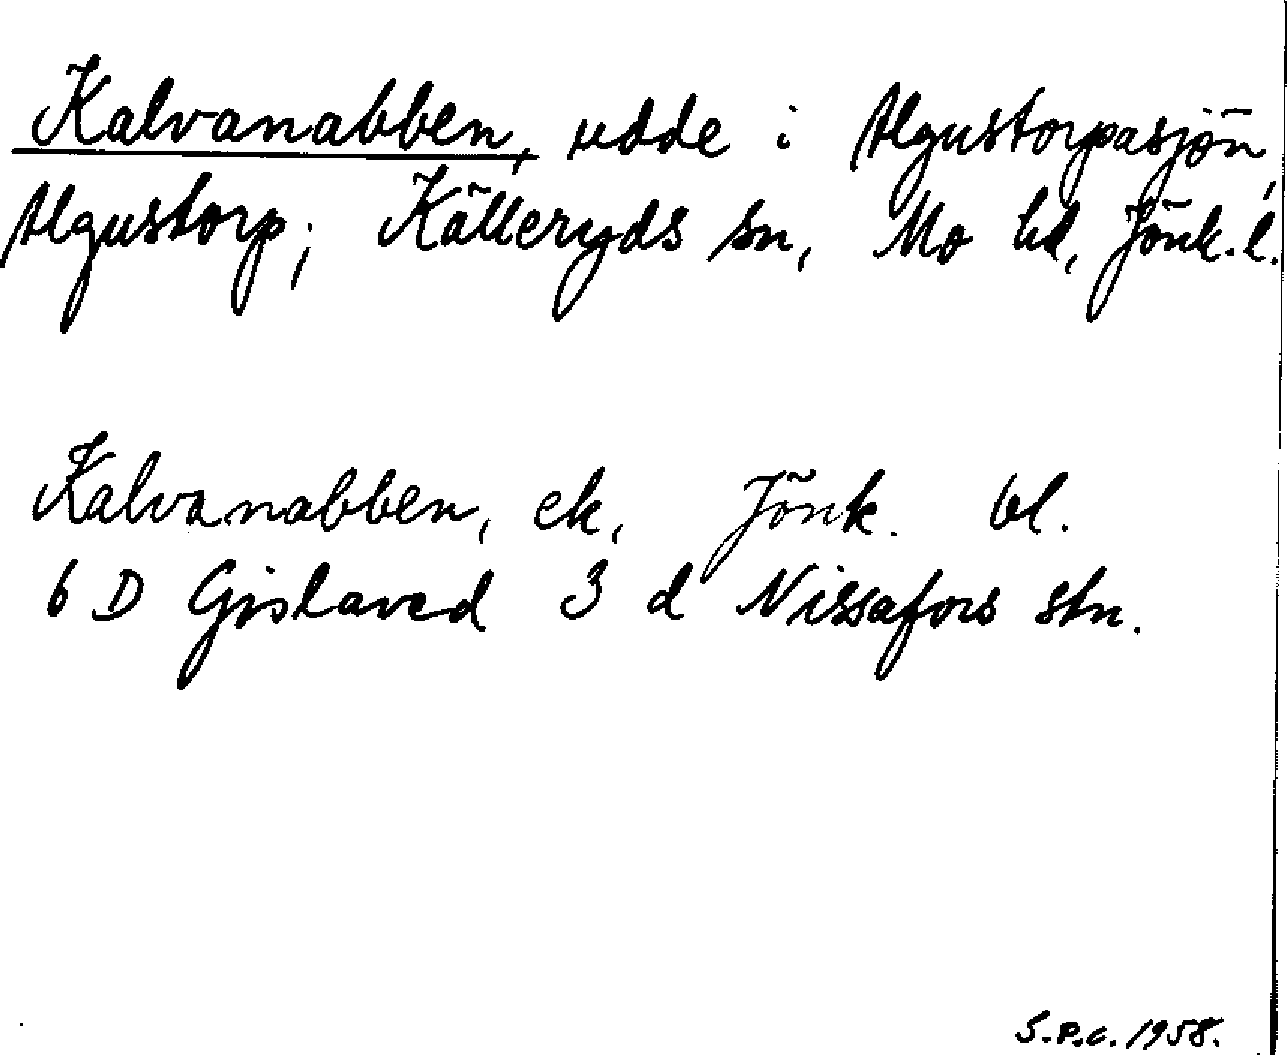 Kalvanabben, udde i Algustorpasjön,
Algustorp; Källeryds sn, Mo hd, Jönk.l.
Kalvanabben, ek, Jönk. bl.
6 D Gislaved 3 d Nissafors stn.
S.P.C. 1958.